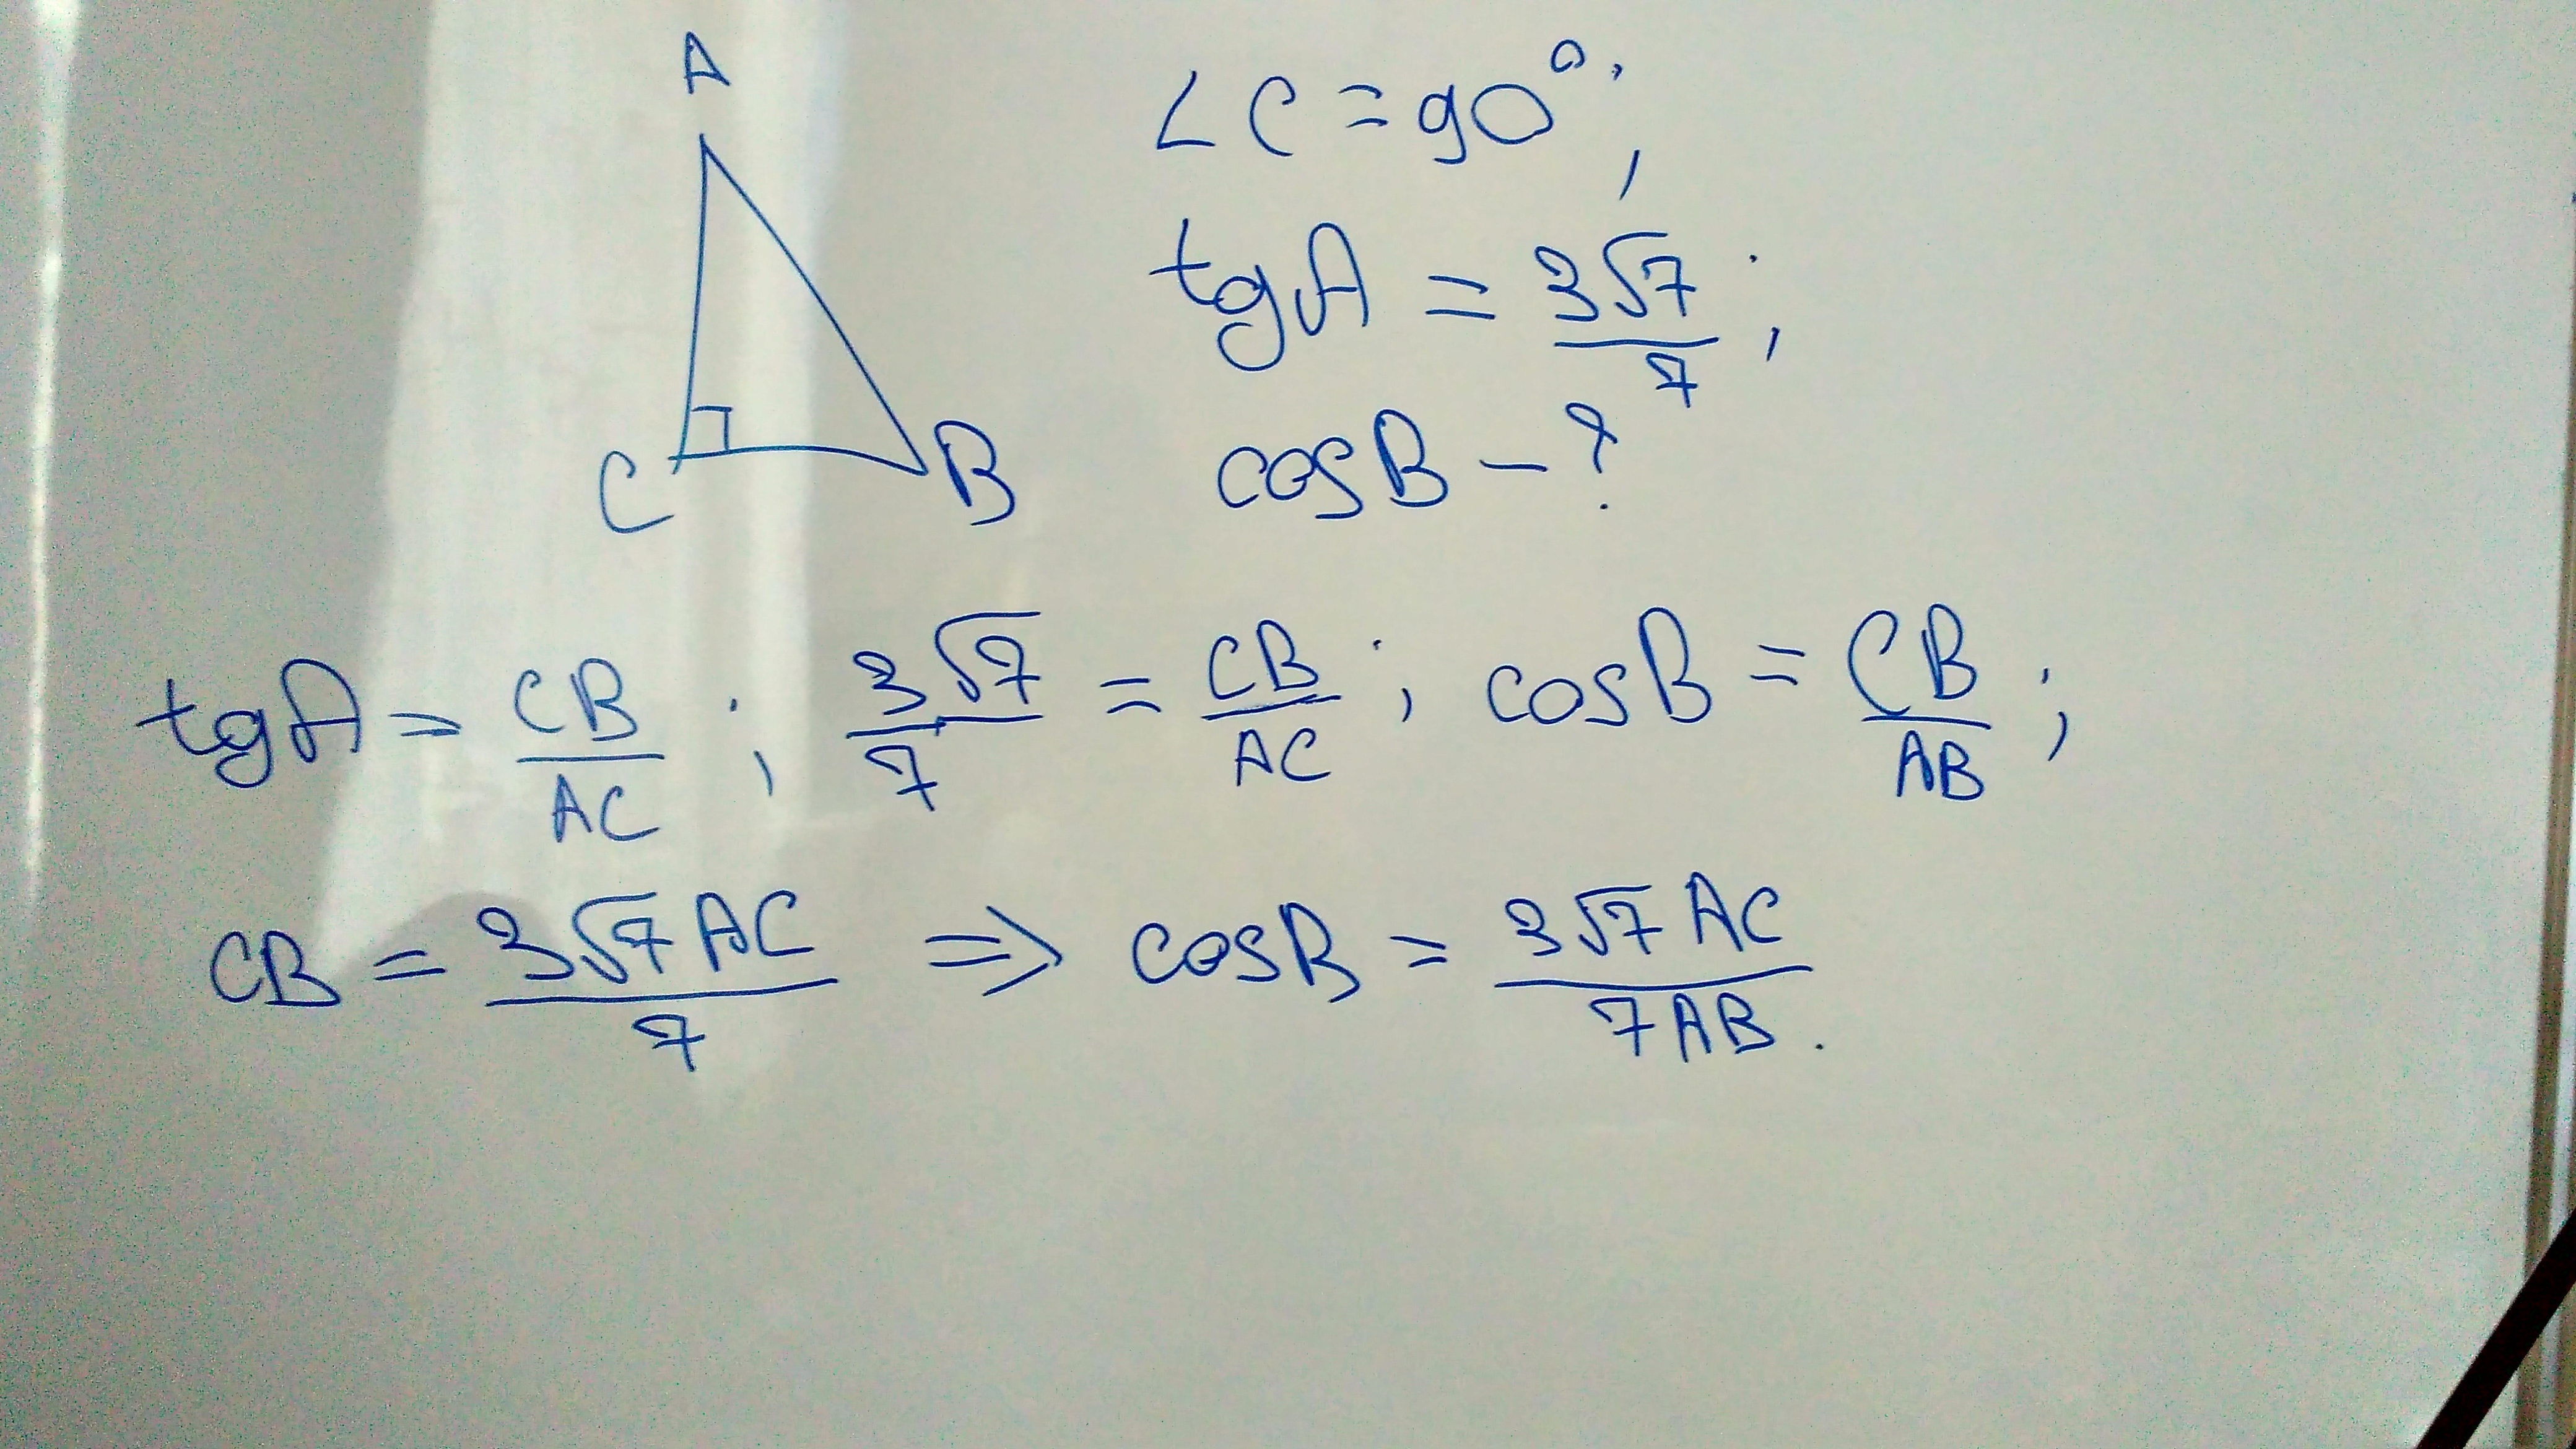 A
C
B
∠C = 90°;
tgA = 3√7/7;
cosB – ?
tgA = CB/AC; 3√7/7 = CB/AC; cosB = CB/AB;
CB = 3√7 AC/7 ⇒ cosB = 3√7 AC/7AB.